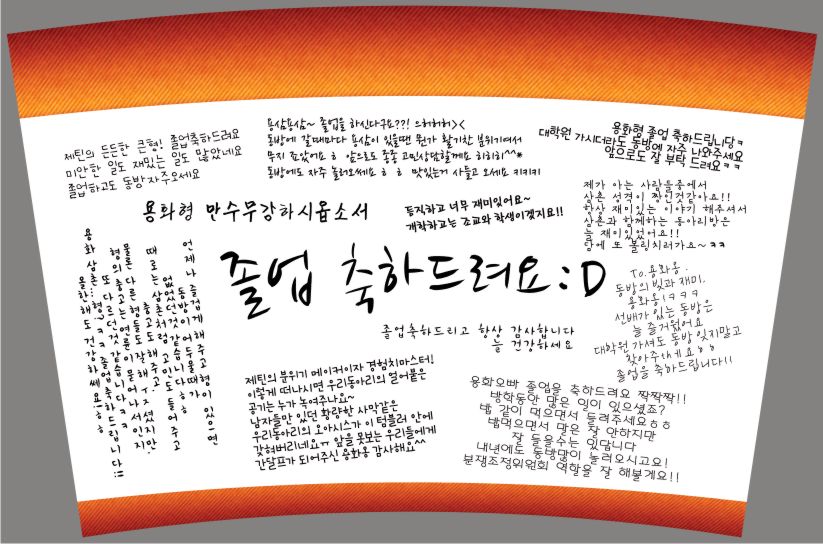 제틴의 든든한 큰형! 졸업축하드려요
미안한 일도 재밌는 일도 많았네요
졸업하고도 동방자주오세요
용삼용삼~ 졸업을 하신다구요??! 으허허허><
동방에 갈때마다 용삼이 있을땐 뭔가 활기찬 분위기여서
무지 좋았어요 ㅎ 앞으로도 종종 고민상담할께요 히히히^^*
동방에도 자주 놀러오세요 ㅎ ㅎ 맛있는거 사들고 오세요 키키키키
용화형 졸업 축하드립니당ㅋ
대학원 가시더라도 동방에 자주 나와주세요
앞으로도 잘 부탁 드려요 ㅋ ㅋ
용화형 만수무강하시옵소서
듬직하고 너무 재미있어요~
개학하고는 조교와 학생이겠지요!!
제가 아는 사람들중에서
삼촌 성격이 짱인것같아요!!
항상 재미있는 이야기 해주셔서
삼촌과 함께하는 동아리방은
늘 재미있었어요!!
담에 또 볼링치러가요~ㅋㅋ
졸업 축하드려요 :D
졸업축하드리고 항상 감사합니다
늘 건강하세요
To.용화옹.
동방의 빛과 재미.
용화옹!ㅋㅋㅋ
선배가 있는 동방은
늘 즐거웠어요
대학원 가셔도 동방 잊지말고
찾아주세요ㅎㅎ
졸업을 축하드립니다!!
언제나 즐겁게 해주고 형이 있으면
동방이 어두울때가
없었던것 같습니다ㅎ
때로는 삼촌처럼 고민도 들어주고
충고도 해주고
물론 다른형들도 잘해ㅈㅜ셨지만
형의 충고는 연륜이 묻어나서인지
또 다르던것 같습니다ㅋㅋ
용화삼촌..형ㅋㅋ 졸업축하드립니다!!
올한해도 건강하쎄요!ㅎㅎ
제틴의 분위기 메이커이자 경험치마스터!
이렇게 떠나시면 우리동아리의 얼어붙은
공기는 누가 녹여주나요~
남자들만 있던 황량한 사막같은
우리동아리의 오아시스가 이 텀블러 안에
갇혀버리네요ㅠ 앞을 못보는 우리들에게
간달프가 되어주신 용화옹 감사해요^^
용화오빠 졸업을 축하드려요 짝짝짝!!
방학동안 많은 일이 있으셨죠?
밥 같이 먹으면서 들려주세요ㅎㅎ
밥먹으면서 말은 잘 안하지만
잘 들을수는 있답니다
내년에도 동방많이 놀러오시고요!
분쟁조정위원회 역할을 잘 해볼게요!!